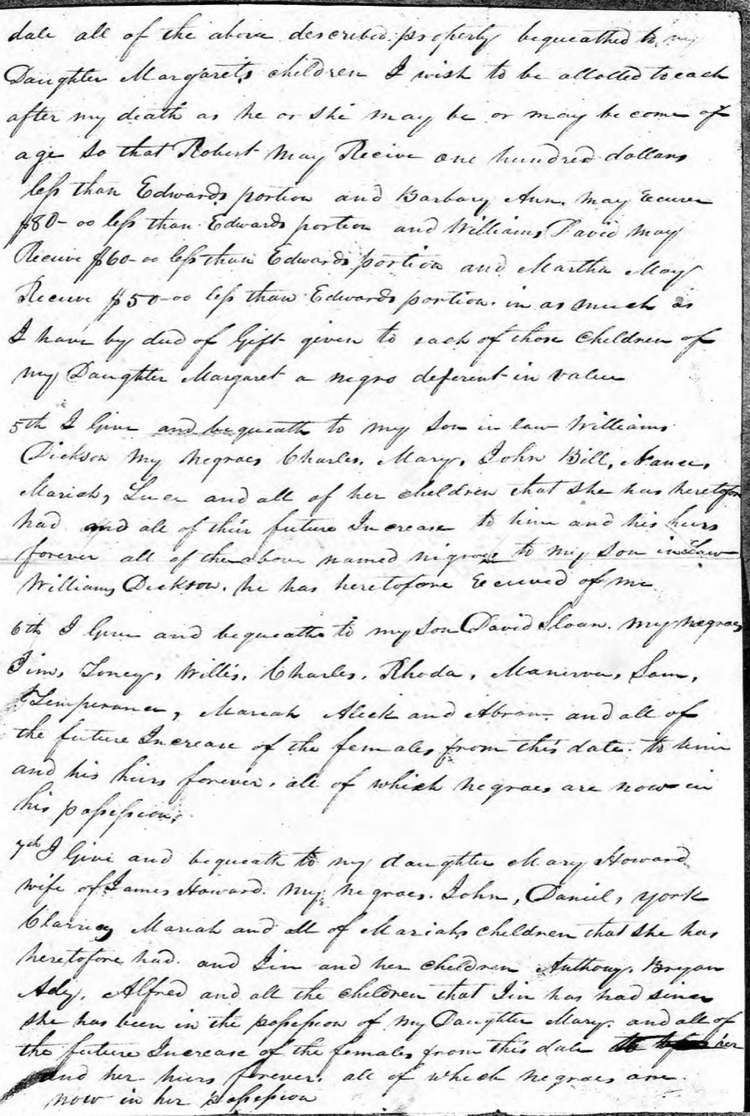 date all of the above described property bequeathed to my
Daughter Margarets children I wish to be allotted to each
after my death as he or she may be or may become of
age So that Robert May Recive one hundred dollars
less than Edwards portion and Barbary Ann may Receive
$80-00 less than Edwards portion and Williams David may
Receive $60-00 less than Edwards portion and Martha May
Receive $50-00 less than Edwards portion. in as much as
I have by deed of Gift given to each of those Children of
my Daughter Margaret a negro deferent in value
5th I Give and bequeath to my Son in law Williams
Dickson my negroes Charles, Mary, John Bill, Nance,
Mariah, Luce and all of her children that she has heretofore
had and all of their future Increase to him and his heirs
forever all of the above named nigroes to my Son in Law
Williams Dickson. he has heretofore Received of me
6th I Give and bequeath to my Son David Sloan. my negroes
Jim, Toney, Willis, Charles, Rhoda, Manerva, Sam,
Temperance, Mariah Aleck and Abram. and all of
the future Increase of the females from this date. to him
and his heirs forever. all of which negroes are now in
his possession.
7th I Give and bequeath to my daughter Mary Howard
wife of James Howard. my negroes. John, Daniel, York
Mariah and all of Mariahs children that she has
heretofore had. and Jin and her children Anthony, Bryan
Ady, Alfred and all the children that Jin has had since
she has been in the possession of my Daughter Mary. and all of
the future Increase of the females from this date her
and her heirs forever. all of which negroes are
now in her possession